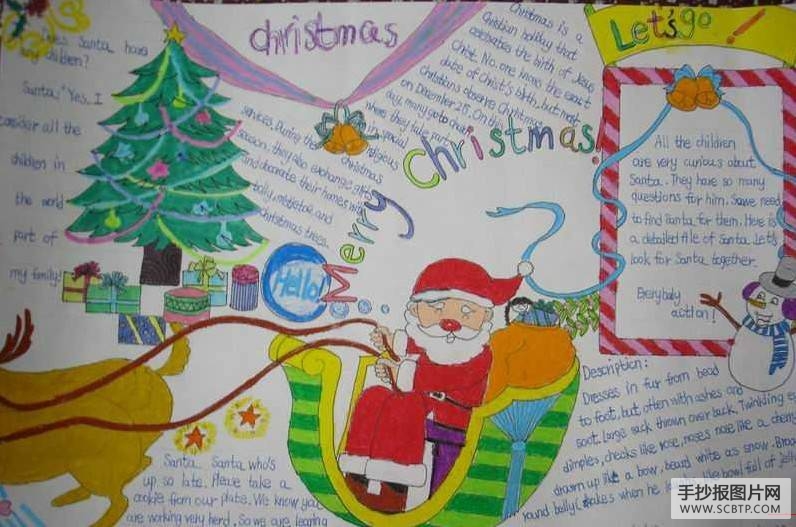 christmas
Does Santa have
children?
Santa: "Yes. I
consider all the
children in
the world
part of
my family!
Christmas is a
Christian holiday that
celebrates the birth of Jesus
Christ. No. one knows the exact
date of Christ's birth, but most
christians observe Christmas
on December 25. On this
day, many go to church
where they take part
in special
religious
services. During the christmas
season, they also exchange gifts
and decorate their homes with
holly, mistletoe, and
christmas trees.
Merry Christmas!
Hello!
Let's go!
All the children
are very curious about
Santa. They have so many
questions for him. So we need
to find Santa for them. Here is
a detailed file of Santa. Let's
look for Santa together
Everybaby
action!
Description:
Dresses in fur from bead
to foot, but often with ashes and
soot. Large sack thrown over back. Twinkling
dimples, cheaks like rose, noses nose like a cherry
drawn up like a bow, beard white as snow. Broad
round belly shakes when he like bowl full of jelly
Santa Santa who's
up so late. Please take a
cookie from our plate. We know you
are working very herd. So we are
手抄报图片网
WWW.SCBTP.COM